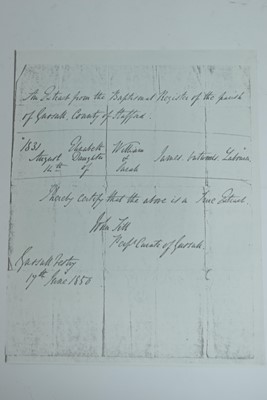 An Extract from the Baptismal Register of the parish
of Gnosall County of Stafford.
1831 Elizabeth William
August Daughter & James Labourer
14th of Sarah
I hereby certify that the above is a True Extract.
John Till
Curate of Gnosall
Gnosall Vestry
17th June 1850